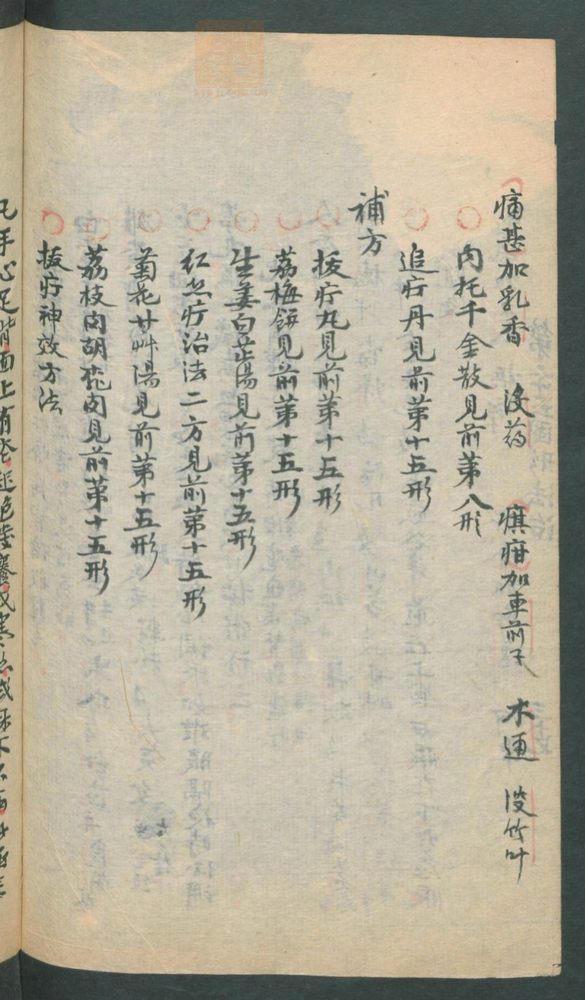 痛甚加乳香 没药 癀疳加車前子 木通 淡竹叶
内托千金散見前第八形
追疔丹見前第十五形
補方
拔疔丸見前第十五形
荔梅餅見前第十五形
生姜白芷湯見前第十五形
红丝疔治法二方見前第十五形
菊花甘艸湯見前第十五形
荔枝肉胡桃肉見前第十五形
拔疔神效方法
凡手心足背面上有發起